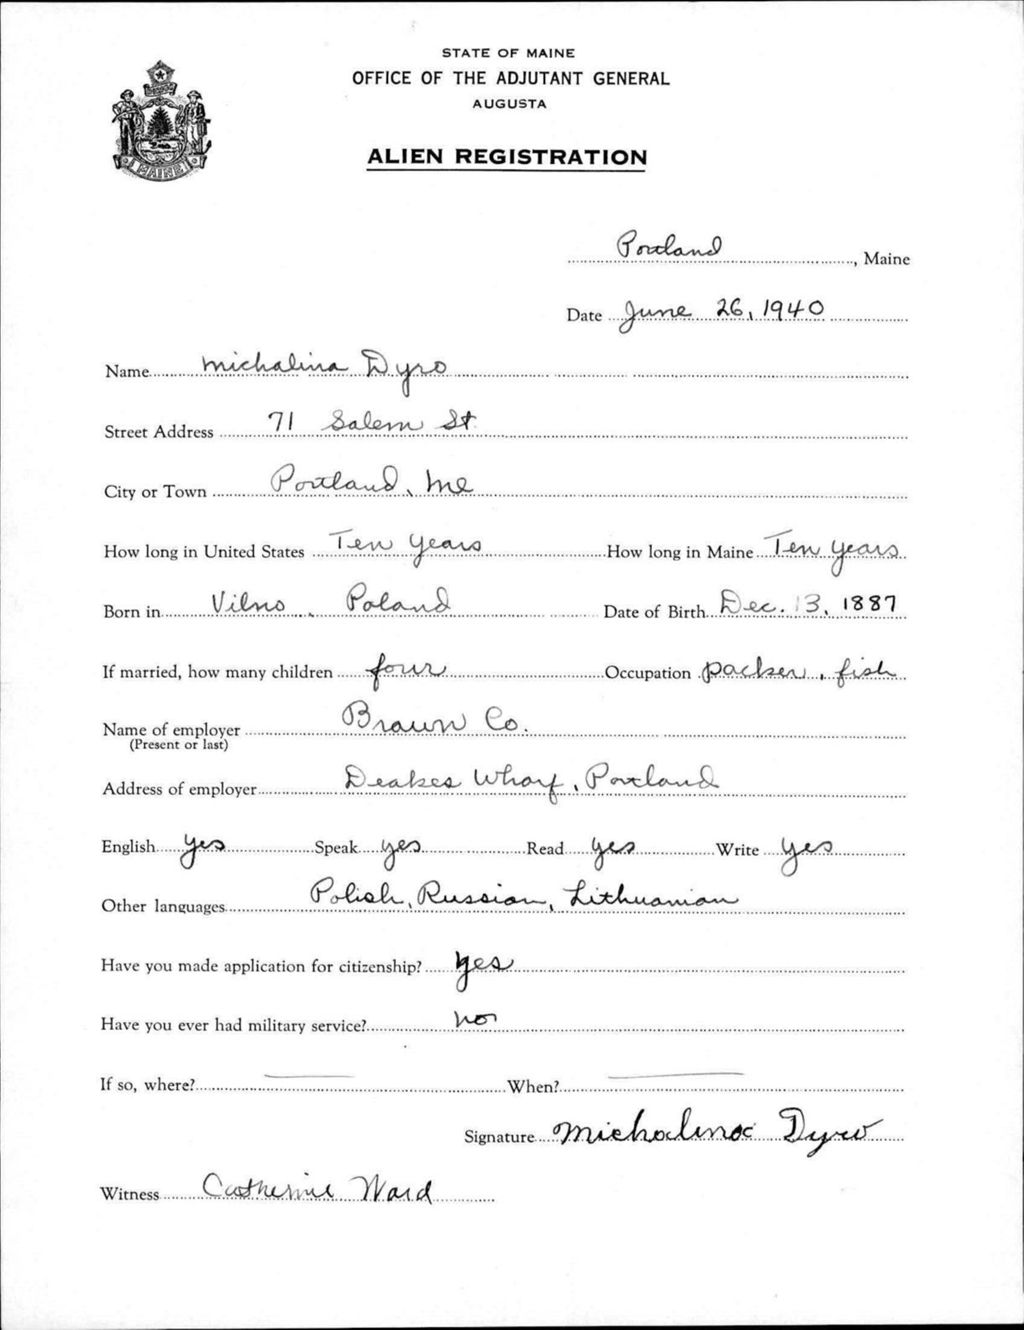 STATE OF MAINE
OFFICE OF THE ADJUTANT GENERAL
AUGUSTA
ALIEN REGISTRATION
MAINE
Portland, Maine
Date June 26, 1940
Name Michalina Dyro
Street Address 71 Salem St.
City or Town Portland, Me
How long in United States Ten Years How long in Maine Ten years
Born in Vilno, Poland Date of Birth Dec. 13, 1887
If married, how many children four Occupation packer, fish
Name of employer Brawn Co.
(Present or last)
Address of employer Deakes Wharf, Portland
English yes Speak yes Read yes Write yes
Other languages Polish, Russian, Lithuanian
Have you made application for citizenship? yes
Have you ever had military service? no
If so, where? — When? —
Signature Michalina Dyro
Witness Catherine Ward